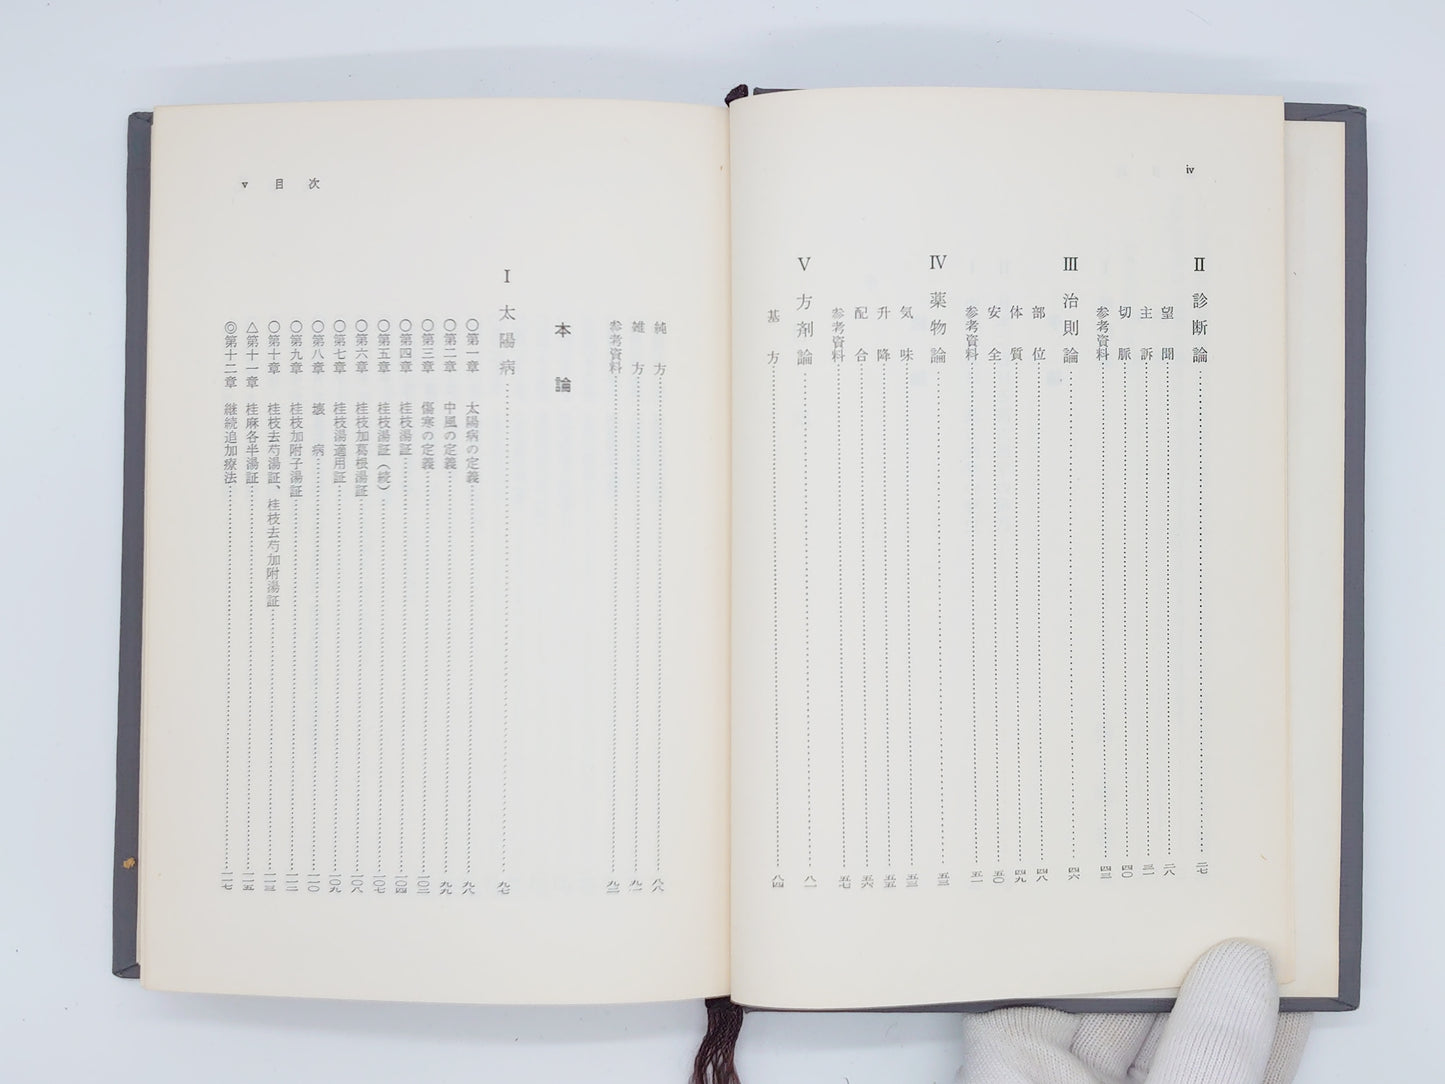 iv
II 診断論……二七
望聞……二八
主訴……三一
切脈……四〇
参考資料……四三
III 治則論……四六
部位……四八
体質……四九
安全……五〇
参考資料……五一
IV 薬物論……五三
気味……五三
升降……五五
配合……五六
参考資料……五七
V 方剤論……八一
基方……八四
v 目次
純方……八八
雑方……九一
参考資料……九二
本論
I 太陽病……九七
○第一章 太陽病の定義……九八
○第二章 中風の定義……九九
○第三章 傷寒の定義……一〇三
○第四章 桂枝湯証……一〇四
○第五章 桂枝湯証(続)……一〇七
○第六章 桂枝加葛根湯証……一〇八
○第七章 桂枝湯適用証……一〇九
○第八章 壊病……一一〇
○第九章 桂枝加附子湯証……一一二
○第十章 桂枝去芍湯証、桂枝去芍加附湯証……一一三
△第十一章 桂麻各半湯証……一一五
◎第十二章 継続追加療法……一一七